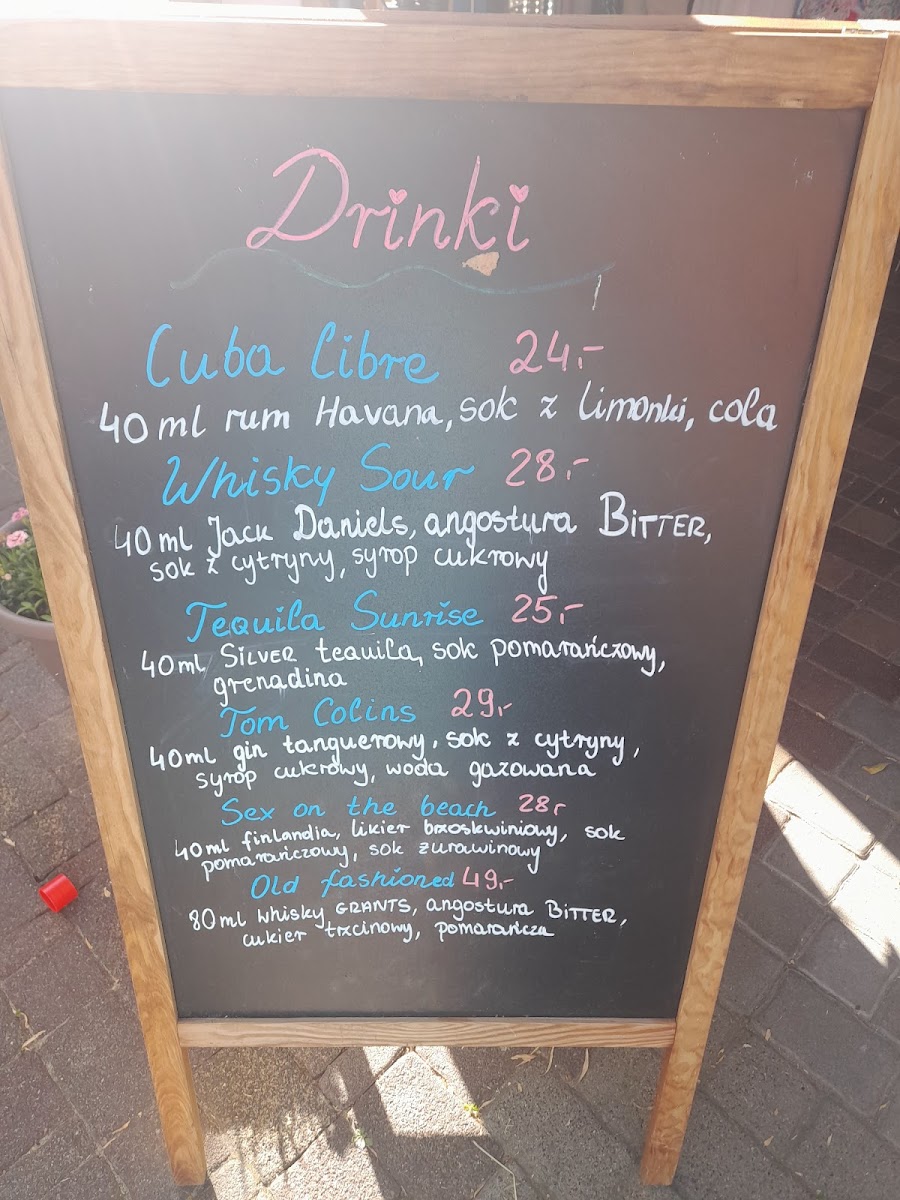 Drinki
Cuba Libre 24,-
40 ml rum Havana, sok z limonki, cola
Whisky Sour 28,-
40 ml Jack Daniels, angostura BITTER,
sok z cytryny, syrop cukrowy
Tequila Sunrise 25,-
40 ml SILVER tequila, sok pomarańczowy,
grenadina
Tom Colins 29,-
40 ml gin tanguerowy, sok z cytryny,
syrop cukrowy, woda gazowana
Sex on the beach 28,-
40 ml finlandia, likier brzoskwiniowy, sok
pomarańczowy, sok żurawinowy
Old fashioned 49,-
80 ml whisky GRANTS, angostura BITTER,
cukier trzcinowy, pomarańcza